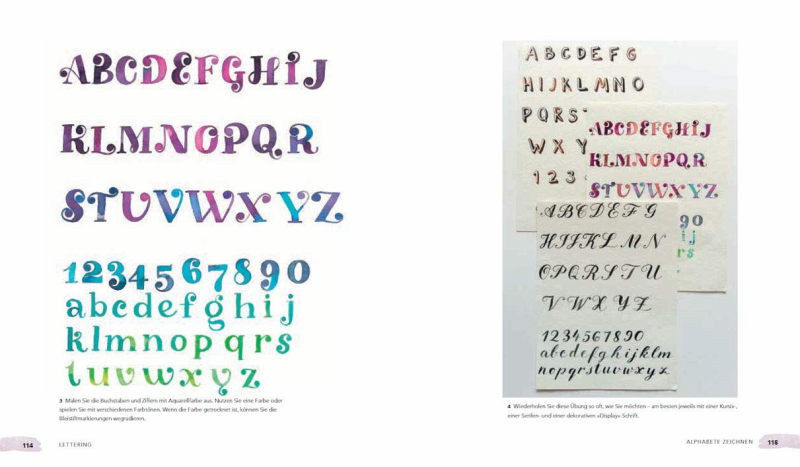 ABCDEFGHIJ
KLMNOPQR
STUVWXYZ
1234567890
abcdefghij
klmnopqrs
tuvwxyz
3 Malen Sie die Buchstaben und Ziffern mit Aquarellfarbe aus. Nutzen Sie eine Farbe oder
spielen Sie mit verschiedenen Farbtönen. Wenn die Farbe getrocknet ist, können Sie die
Bleistiftmarkierungen wegradieren.
114 LETTERING
ABCDEFG
HIJKLMNO
PQRS
WXY
123
ABCDEFGHIJ
KLMNOPQR
STUVWXYZ
90
ij
rs
ABCDEFG
HIJKLMN
OPQRSTU
VWXYZ
1234567890
abcdefghijklm
nopqrstuvwxyz
4 Wiederholen Sie diese Übung so oft, wie Sie möchten – am besten jeweils mit einer Kursiv-,
einer Serifen- und einer dekorativen »Display«-Schrift.
ALPHABETE ZEICHNEN 115